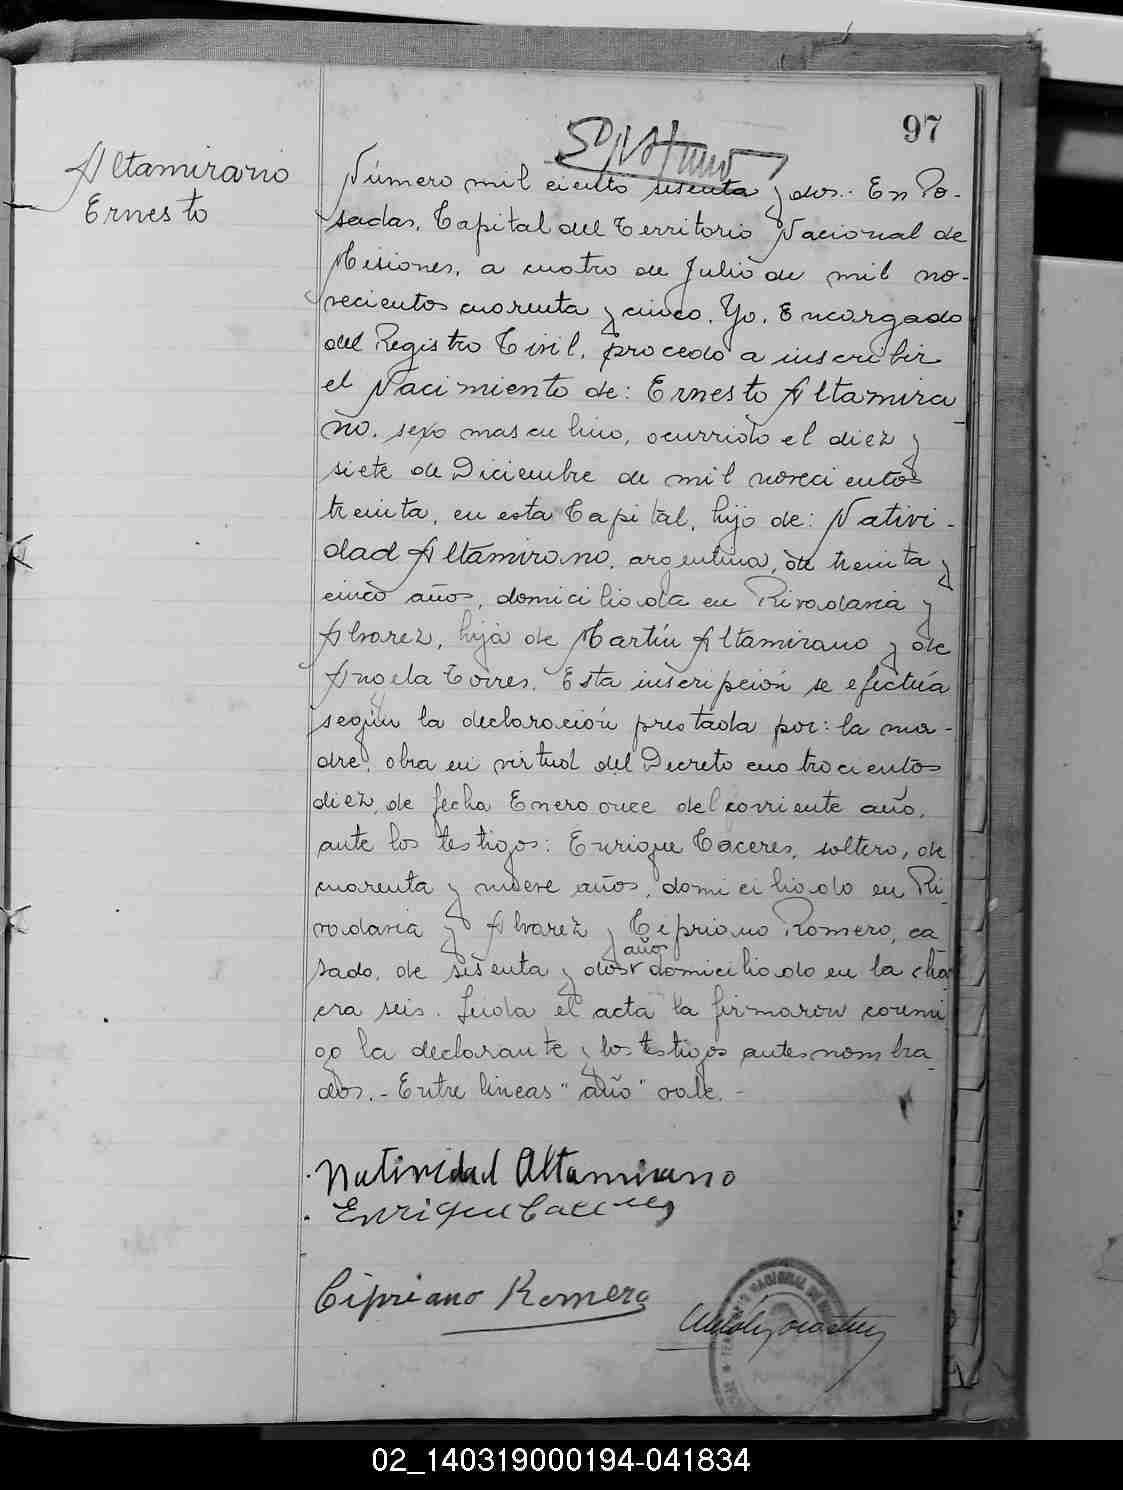 97
Altamirano
Ernesto
Número mil ciento sesenta y dos.: En Po-
sadas, Capital del Territorio Nacional de
Misiones, a cuatro de Julio de mil no-
vecientos cuarenta y cinco. Yo, Encargado
del Registro Civil, procedo a inscribir
el Nacimiento de: Ernesto Altamira
no. sexo masculino, ocurrido el diez y
siete de Diciembre de mil novecientos
treinta, en esta Capital, hijo de: Nativi-
dad Altamirano, argentina, de treinta y
cinco años, domiciliada en Rivadavia y
Alvarez, hija de Martín Altamirano y de
Angela Torres. Esta inscripción se efectúa
según la declaración prestada por: la ma-
dre, obra en virtud del Decreto cuatrocientos
diez, de fecha Enero once del corriente año,
ante los testigos: Enrique Caceres, soltero, de
cuarenta y nueve años, domiciliado en Ri-
vadavia y Alvarez y Cipriano Romero, ca
sado, de sesenta y dos años domiciliado en la cha
cra seis. Leida el acta la firmaron conmi
go la declarante y los testigos antes nombra-
dos.- Entre lineas "año" vale.-
Natividad Altamirano
Enrique Caceres
Cipriano Romero
02_140319000194-041834